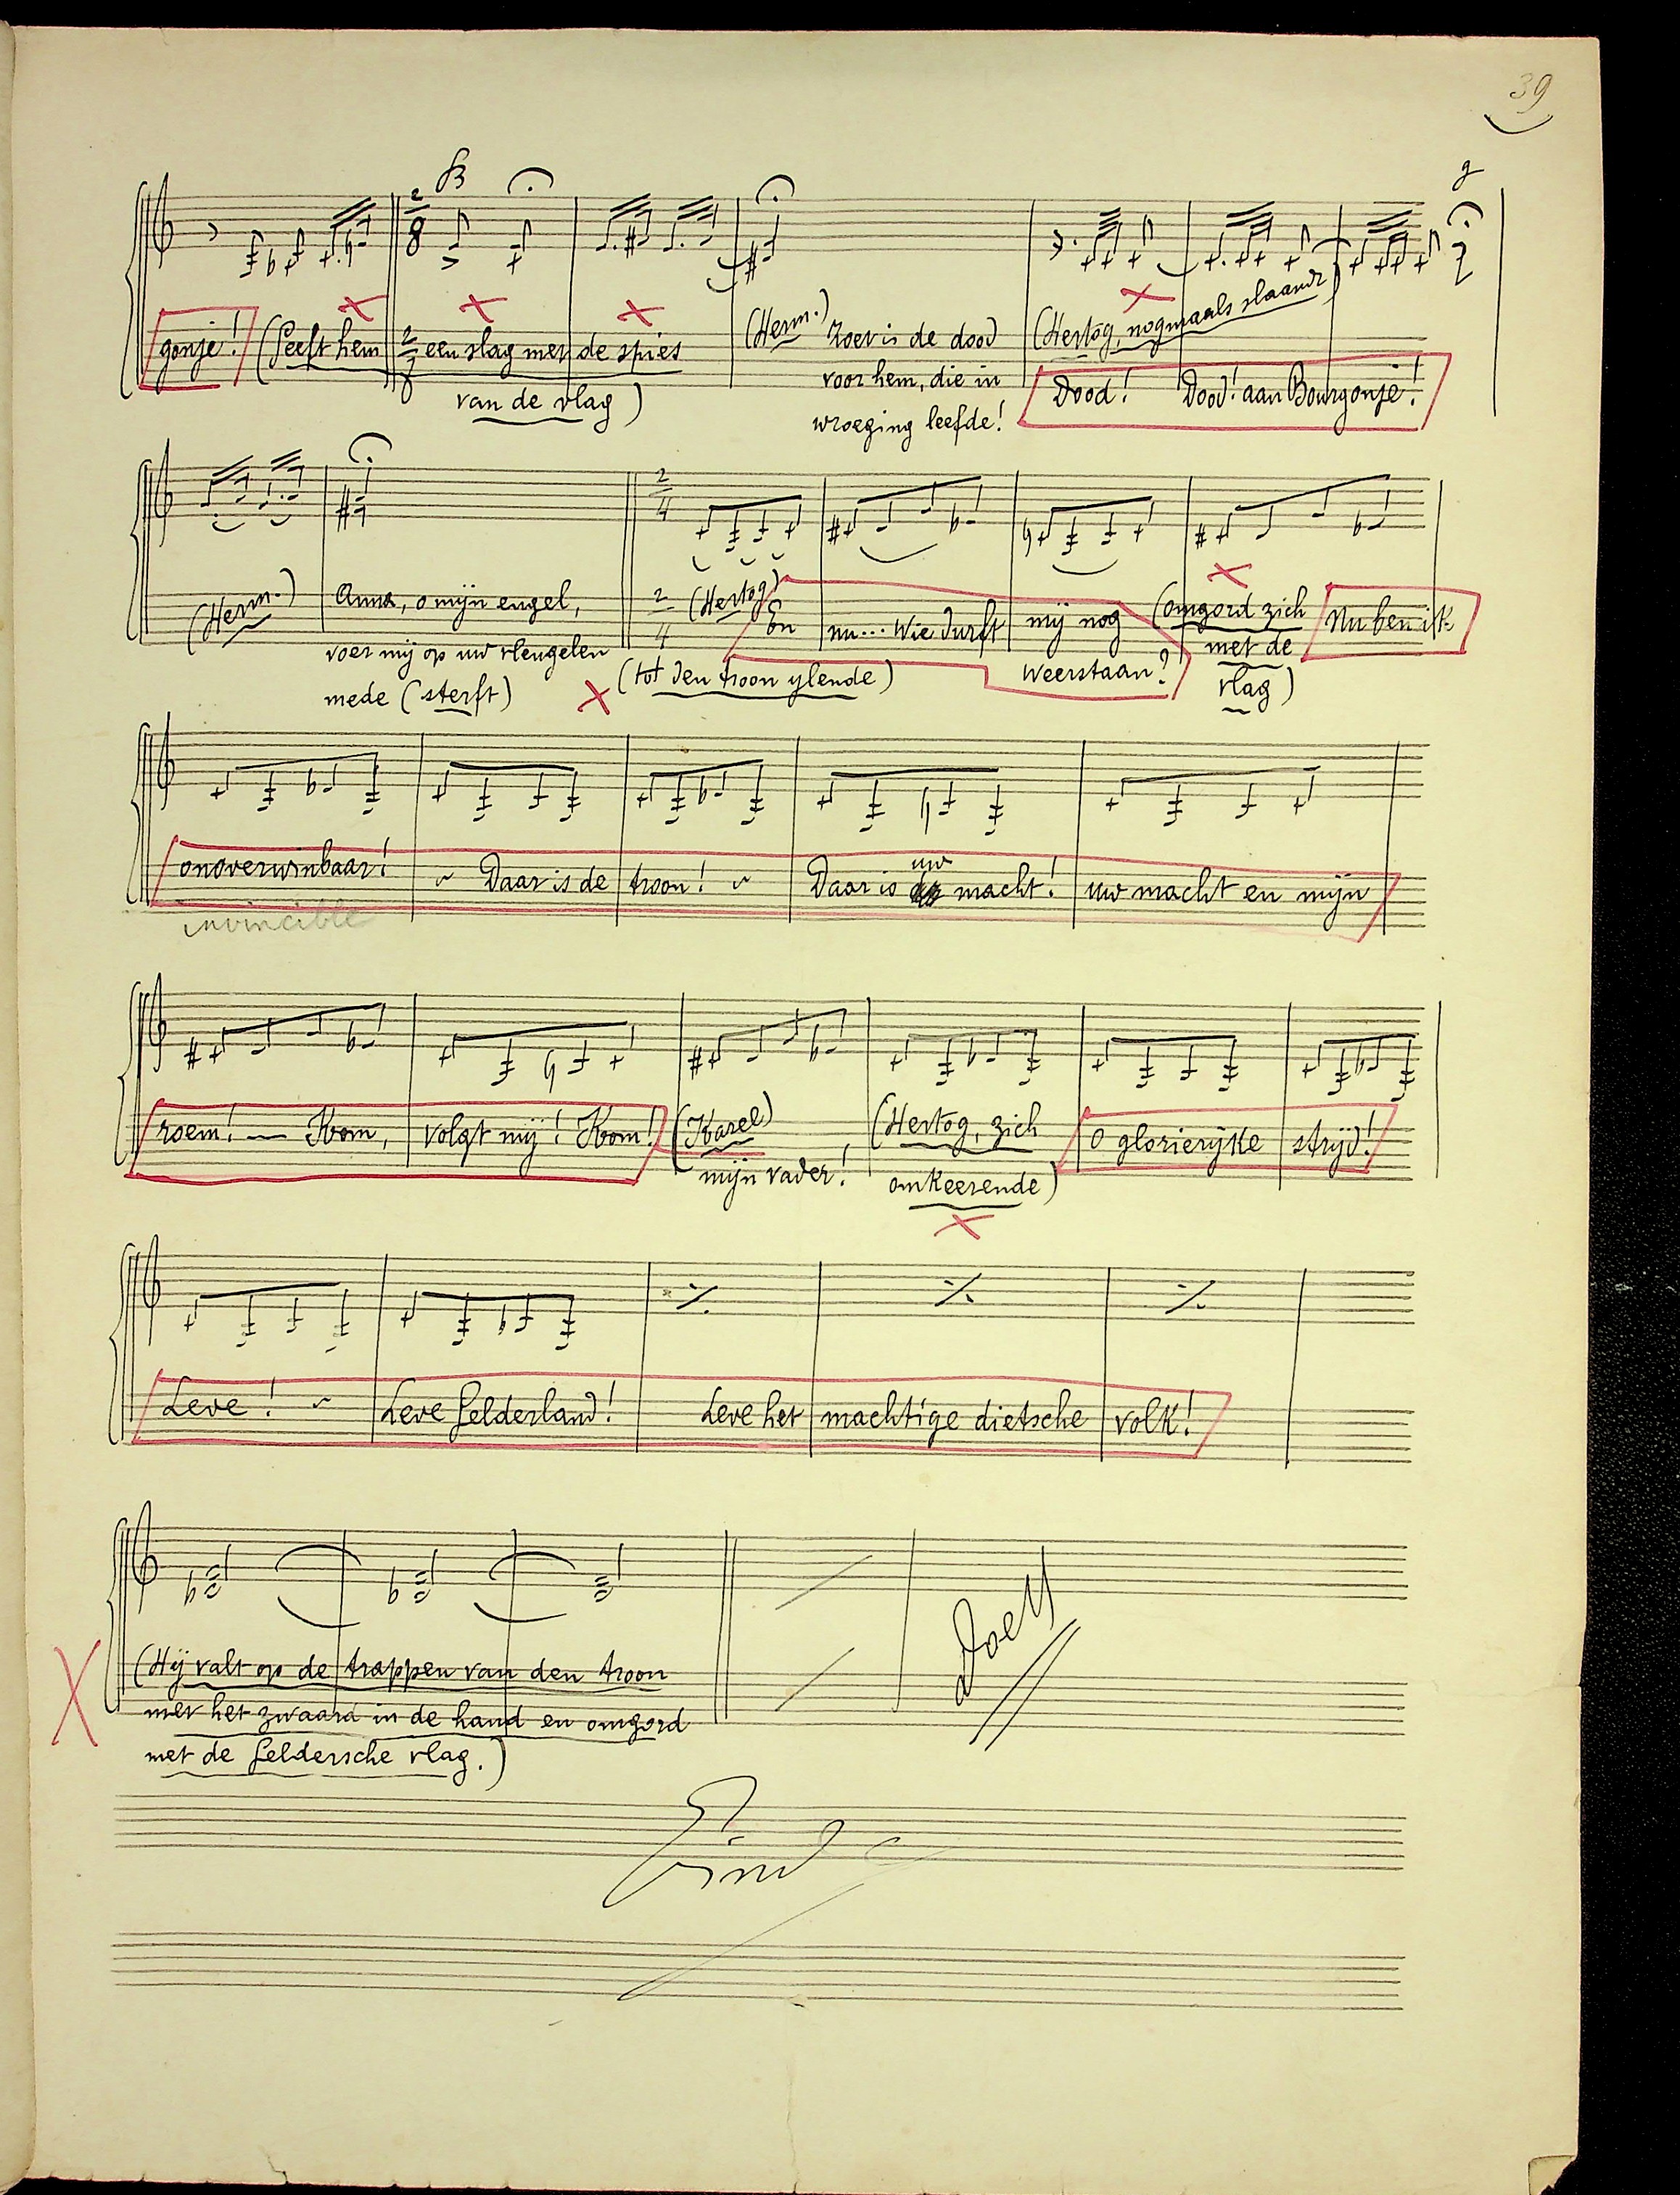 39
gonje! (Geeft hem een slag met de spies
van de vlag)
(Herm.) Zoet is de dood
voor hem, die in
wroeging leefde!
(Hertog, nogmaals slaande)
Dood! Dood! aan Bourgonje!
(Herm.) Anna, o mijn engel,
voer mij op uw vleugelen
mede (sterft)
(Hertog)
En nu... Wie durft mij nog
weerstaan?
(tot den troon ylende)
(omgord zich
met de
vlag)
Nu ben ik
onoverwinbaar! ~ Daar is de troon! ~ Daar is uw macht! uw macht en mijn
invincible
roem! — Kom, volgt mij! Kom!
(Karel)
mijn vader!
(Hertog, zich
omkeerende)
O glorierijke strijd!
Leve! ~ Leve Gelderland! Leve het machtige dietsche volk!
(Hij valt op de trappen van den troon
met het zwaard in de hand en omgord
met de Geldersche vlag.)
Doek
Eind